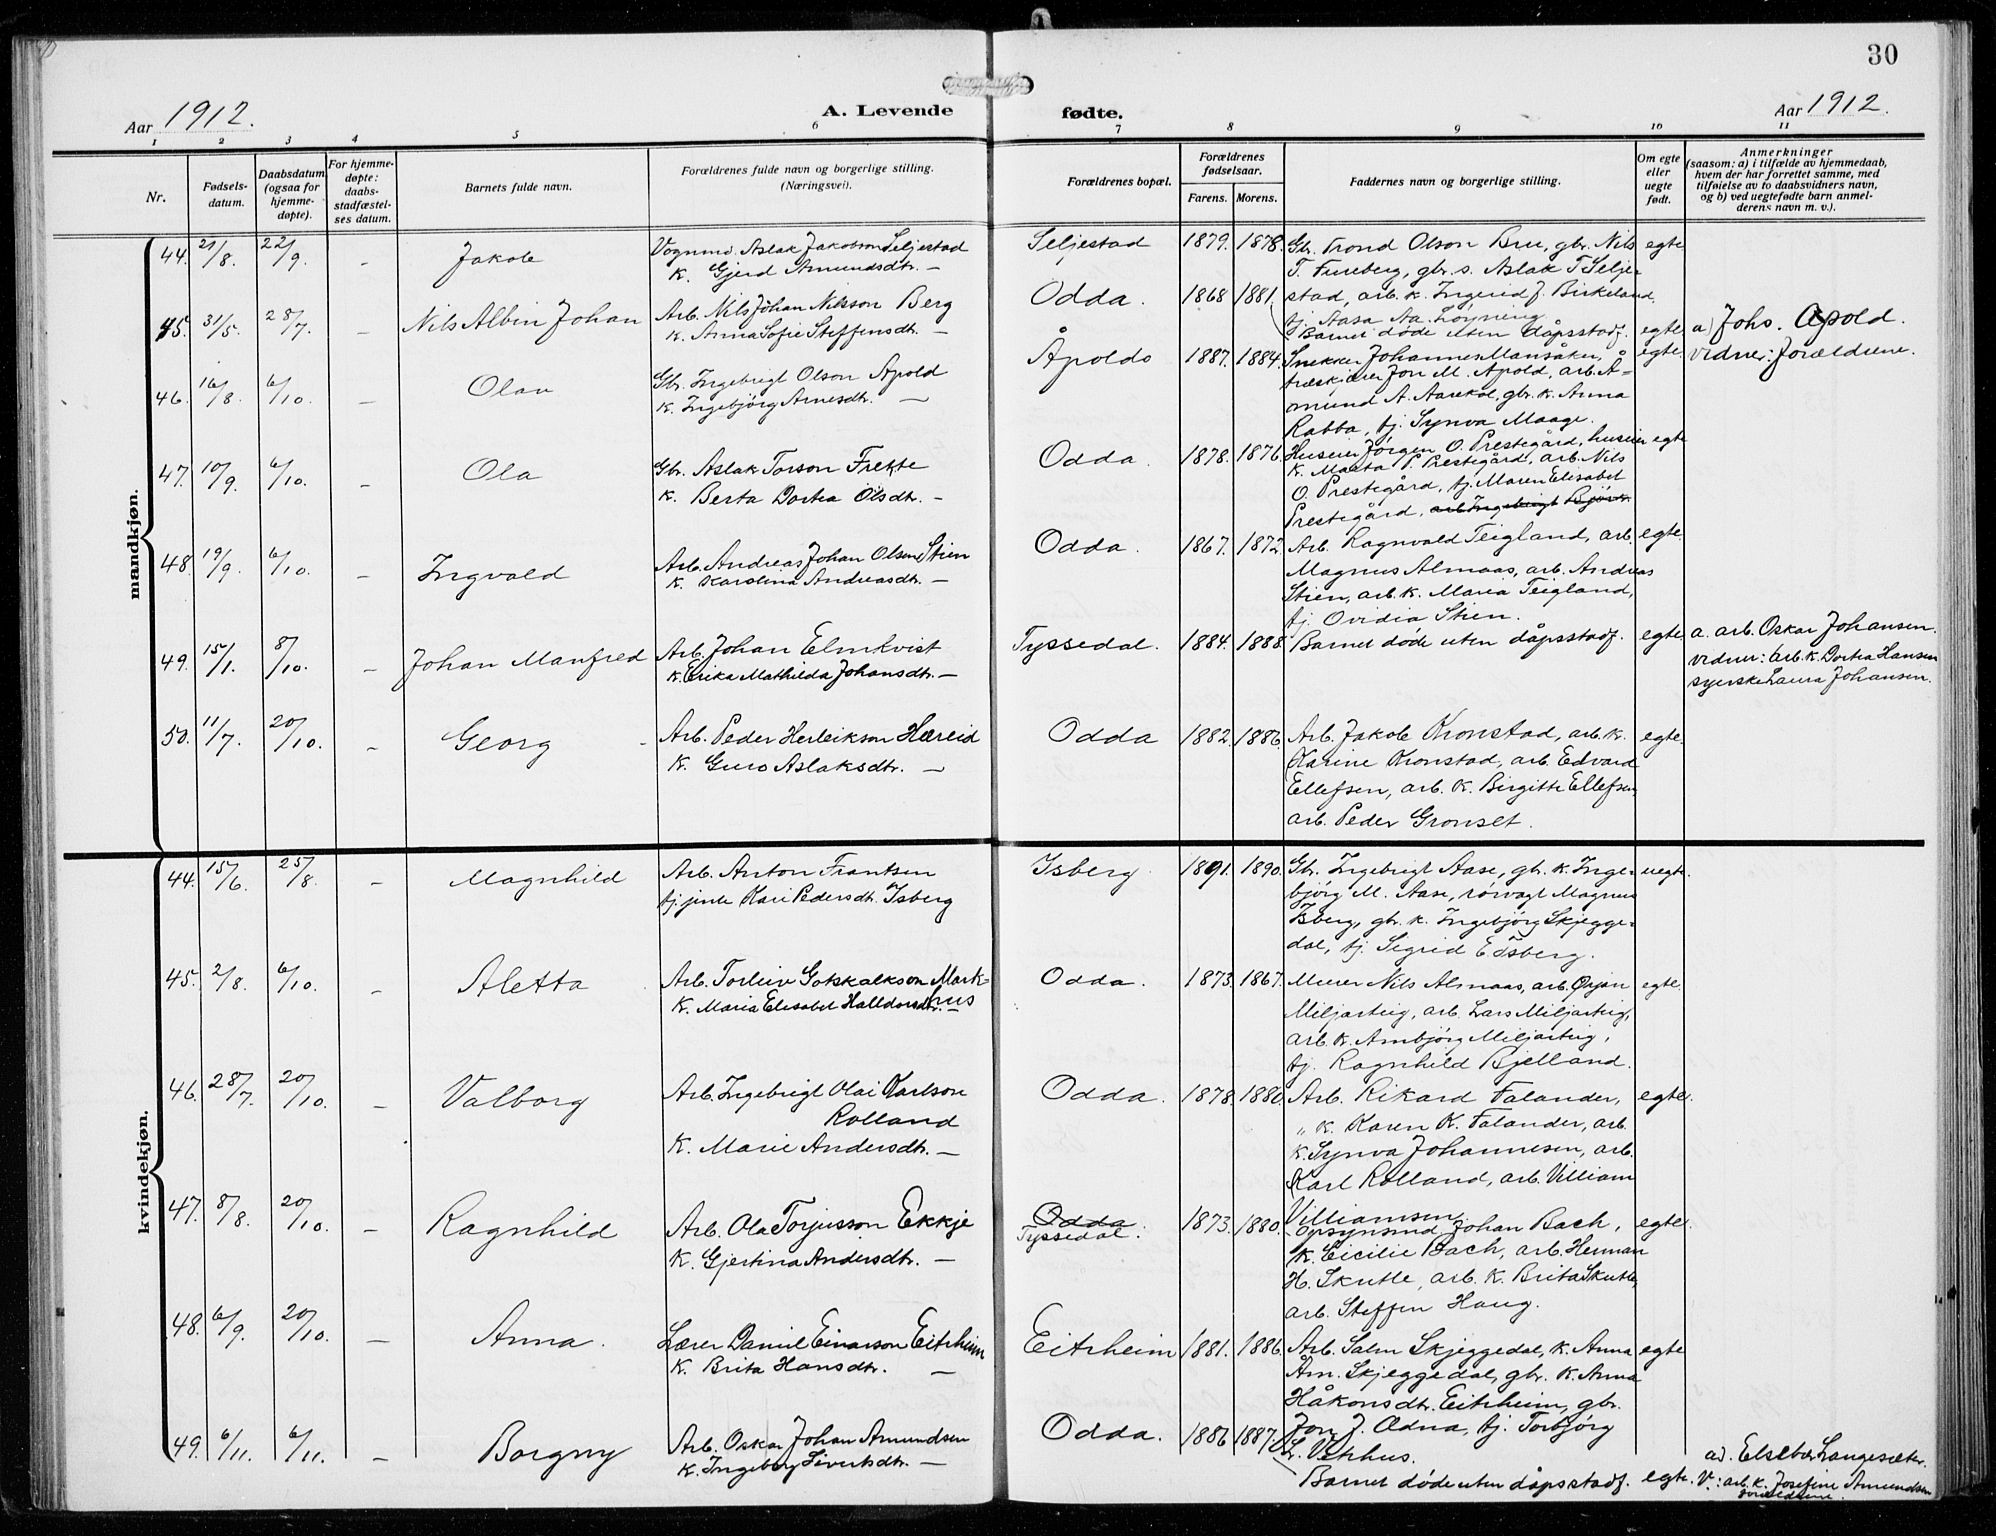 30
Aar 1912.
A. Levende fødte.
Aar 1912.
1 2 3 4 5 6 7 8 9 10 11
Nr.
Fødsels-
datum.
Daabsdatum
(ogsaa for
hjemme-
døpte).
For hjemme-
døpte:
daabs-
stadfæstel-
ses datum.
Barnets fulde navn.
Forældrenes fulde navn og borgerlige stilling.
(Næringsvei).
Forældrenes bopæl.
Forældrenes
fødselsaar.
Farens. Morens.
Faddernes navn og borgerlige stilling.
Om egte
eller
uegte
født.
Anmerkninger
(saasom: a) i tilfælde av hjemmedaab,
hvem der har forrettet samme, med
tilføielse av to daabsvidners navn,
og b) ved uegtefødte barn anmel-
derens navn m. v.).
mandkjøn.
44. 21/8. 22/9. - Jakob
Vognmd. Aslak Jakobson Seljestad
K. Gjerd Amundsdtr. -
Seljestad 1879. 1878.
Gbr. Trond Olson Bru, gbr. Nils
T. Fureberg, gbr. s. Aslak T Selje-
stad, arb. k. Ingerid J. Birkeland,
tj. Aasa Aa. Löyning
egte
45. 31/5. 28/7. - Nils Albin Johan
Arb. Nils Johan Nilsson Berg
k. Anna Sofie Steffensdtr. -
Odda. 1868 1881.
Barnet døde uten dåpsstadf. egte.
a) Johs. Apold.
vidner: forældrene.
46. 16/8. 6/10. - Olav
Gbr. Ingebrigt Olson Apold
K. Ingebjörg Arnesdtr. -
Åpoldo 1887. 1884.
Snekker Johannes Mansåker,
træskjærer Jon M. Apold, arb. Å-
mund A. Aarekol, gbr. k. Anna
Rabba, tj. Synva Maage.
egte.
47. 10/9. 6/10. - Ola
Gbr. Aslak Torson Frekte
K. Berta Dortea Olsdtr. -
Odda. 1878. 1876.
Huseier Jörgen O. Prestegård, huseier
K. Marta P. Prestegård, arb. Nils
O. Prestegård, tj. Maren Elisabet
Prestegård, arb. Ingebrigt Björk.
egte
48. 19/9. 6/10. - Ingvald
Arb. Andreas Johan Olsen Stien
K. Karolina Andreasdtr. -
Odda. 1867. 1872.
Arb. Ragnvald Teigland, arb.
Magnus Almaas, arb. Andreas
Stien, arb. k. Maria Teigland,
tj. Ovidia Stien.
egte.
49. 15/1. 8/10. - Johan Manfred
Arb. Johan Elmkvist
K. Erika Mathilda Johansdtr. -
Tyssedal. 1884. 1888.
Barnet døde uten dåpsstadf. egte
a. arb. Oskar Johansen.
vidner: arb. k. Dortea Hansen
syerske Laura Johansen.
50. 11/7. 20/10. - Georg -
Arb. Peder Herleikson Hæreid
K. Guro Aslaksdtr. -
Odda 1882. 1886.
Arb. Jakob Kronstad, arb. k.
Karine Kronstad, arb. Edvard
Ellefsen, arb. k. Birgitte Ellefsen,
arb. Peder Gronset.
egte.
kvindekjøn.
44. 15/6. 25/8. - Magnhild
Arb. Anton Frantsen
tj. jente Kari Pedersdtr. Isberg
Isberg 1891. 1890.
Gbr. Ingebrigt Aase, gbr. k. Inge-
björg M. Aase, rørvagt Magnus
Isberg, gbr. k. Ingebjörg Skjegge-
dal, tj. Sigrid E Isberg.
uegte.
45. 2/8. 6/10. - Aletta
Arb. Torleiv Gotskalkson Mark-
hus
K. Maria Elisabet Halldorsdtr. -
Odda. 1873. 1867.
Murer Nils Almaas, arb. Ørjan
Miljarteig, arb. Lars Miljarteig,
arb. k. Ambjörg Miljarteig,
tj. Ragnhild Bjelland.
egte.
46. 28/7. 20/10. - Valborg
Arb. Ingebrigt Olai Karlson
Rolland
K. Marie Andersdtr. -
Odda. 1878. 1880.
Arb. Rikard Falander,
„ k. Karen K. Falander, arb.
k. Synva Johannesen, arb.
Karl Rolland, arb. Villiam
Villiamsen
egte.
47. 8/8. 20/10. - Ragnhild
Arb. Ola Torjusson Ekkje
K. Gjertina Andersdtr. -
Odda.
Tyssedal. 1873. 1880.
Opsynsmd Johan Bach,
k. Cicilie Bach, arb. Herman
H. Skutle, arb. k. Brita Skutle,
arb. Steffen Haug.
egte.
48. 6/9. 20/10. - Anna.
Lærer Daniel Einarson Eitrheim
K. Brita Hansdtr. -
Eitrheim 1881. 1886.
Arb. Salm Skjeggedal, k. Anna
Åm. Skjeggedal, gbr. k. Anna
Håkonsdtr. Eitrheim, gbr.
Jon J. Ædna, tj. Torbjörg
L. Vetrhus.
egte
49. 6/11. 6/11. - Borgny
Arb. Oskar Johan Amundsen
K. Ingeborg Sivertsdtr. -
Odda. 1886 1887.
Barnet døde uten dåpsstadf. egte.
a). Elsebe Langesæter.
V.: arb. k. Josefine Amundsen
forældrene.